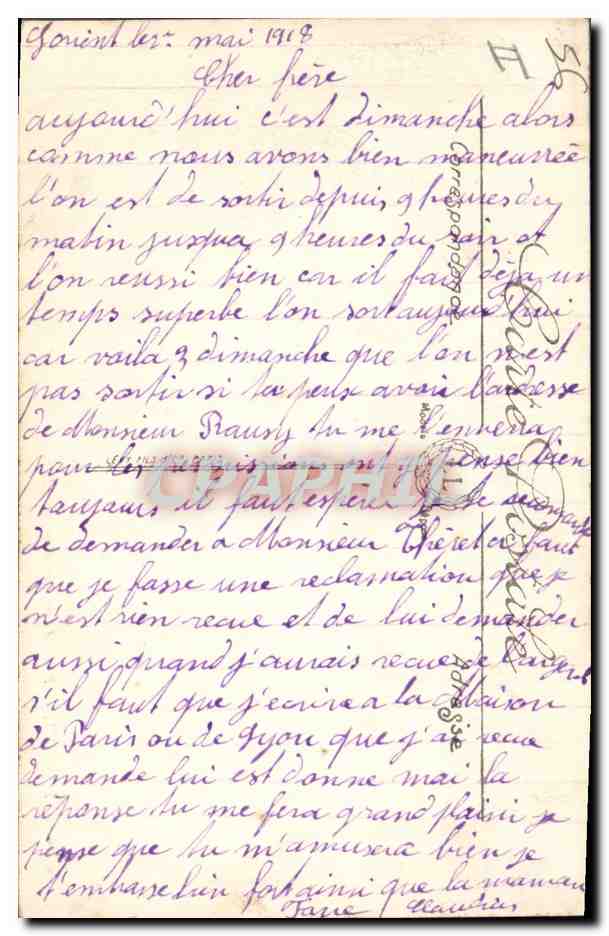 Lorient le 1er mai 1918
56
II
Cher frère
aujourd'hui c'est dimanche alors
comme nous avons bien maneuvrée
l'on est de sortir depuis 9 heures du
matin jusqua 9 heures du soir et
l'on reussi bien car il fait déja un
temps superbe l'on sort aujourd'hui
car voila 3 dimanche que l'on n'est
pas sortir si tu peux avoir l'adresse
de Monsieur Rausy tu me l'enverra
pour les requisisions ont pense bien
toujours il faut esperer je te
de demander a Monsieur si faut
que je fasse une reclamation que je
n'est rien recue et de lui demander
aussi quand j'aurais recue de l'argent
s'il faut que j'ecrire a la Maison
de Paris ou de Lyon que j'ai recue
demande lui est donne mai la
réponse tu me fera grand plaisir je
pense que tu m'amusera bien je
t'embrasse bien fort ainsi que la maman
Correspondance
Carte Postale
Adresse
CPAPHIL